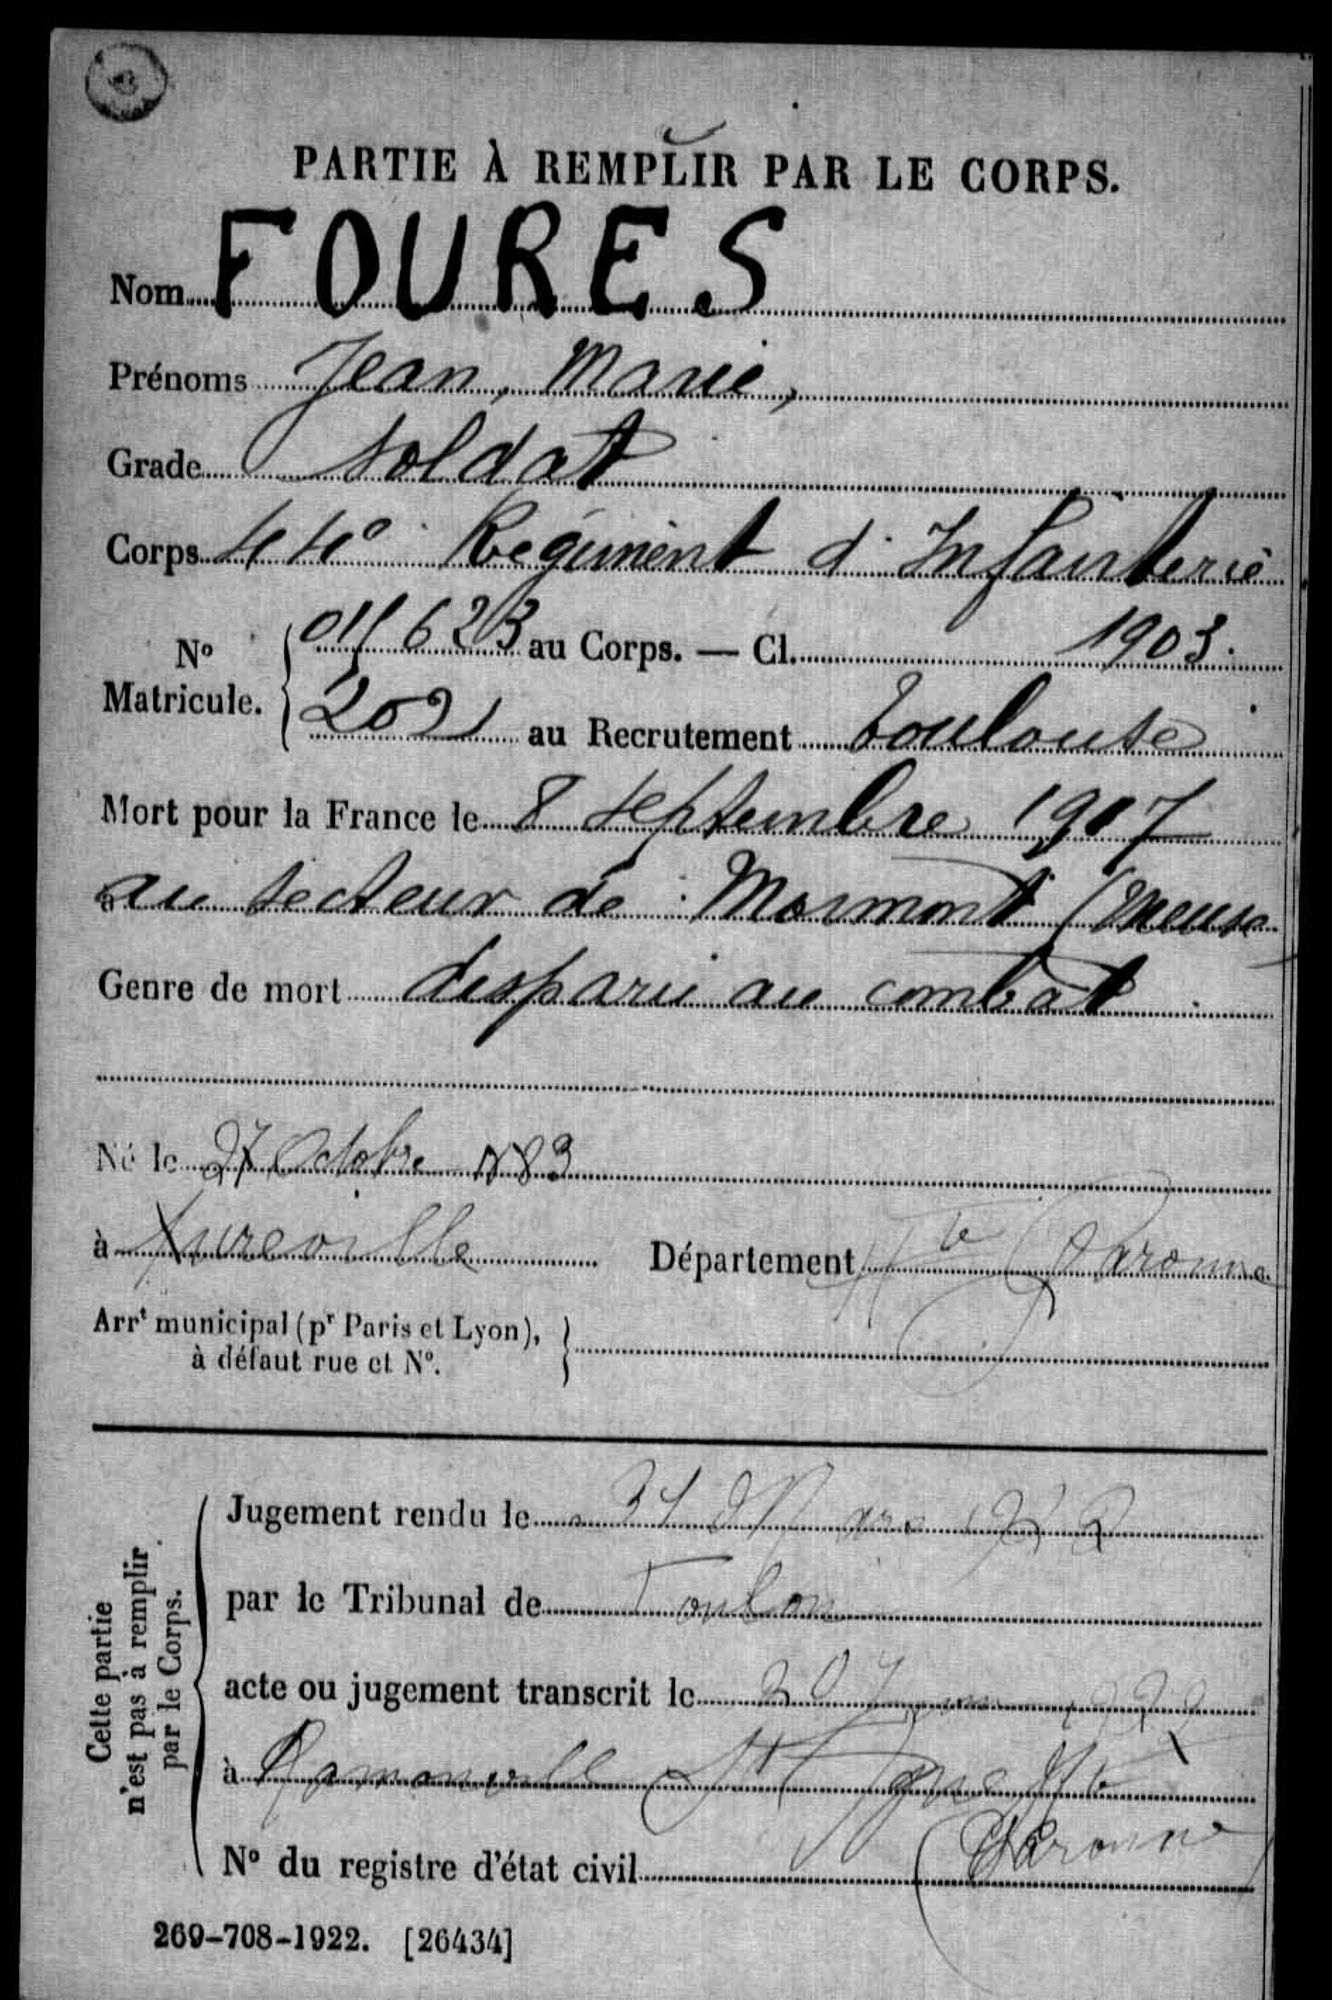 PARTIE À REMPLIR PAR LE CORPS.
Nom FOURES
Prénoms Jean, Marie,
Grade soldat
Corps 44e Régiment d'Infanterie
No Matricule. 011623 au Corps. — Cl. 1903.
2021 au Recrutement Toulouse
Mort pour la France le 8 septembre 1917
au secteur de Mormont (Meuse
Genre de mort disparu au combat
Né le 27 Octobre 1883
à Aureville Département Hte Garonne
Arrt municipal (pr Paris et Lyon),
à défaut rue et No.
Cette partie
n'est pas à remplir
par le Corps.
Jugement rendu le 31 Mars 1922
par le Tribunal de
acte ou jugement transcrit le 1922
à Ramonville St Agne Hte
(Garonne
No du registre d'état civil
269-708-1922. [26434]